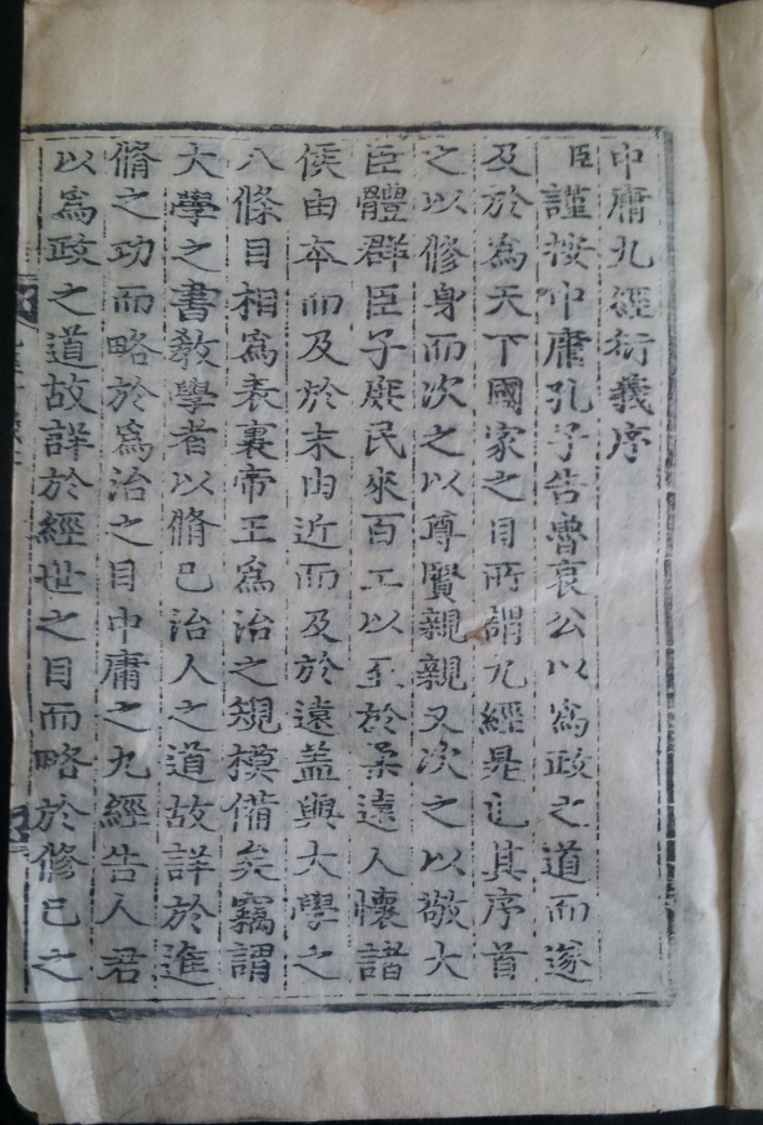 中庸九經衍義序
臣謹按中庸孔子告魯哀公以爲政之道而遂
及於爲天下國家之目所謂九經是也其序首
之以修身而次之以尊賢親親又次之以敬大
臣體群臣子庶民來百工以至於柔遠人懷諸
侯由本而及於末由近而及於遠盖與大學之
八條目相爲表裏帝王爲治之規模備矣竊謂
大學之書敎學者以脩己治人之道故詳於進
脩之功而略於爲治之目中庸之九經告人君
以爲政之道故詳於經世之目而略於修己之